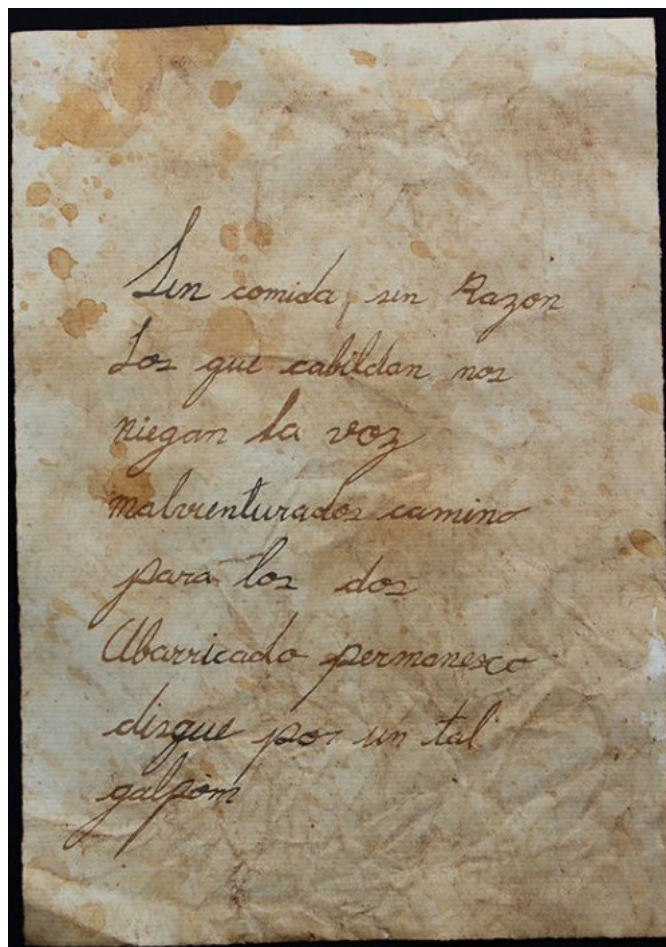 Sin comida, sin Razon
Los que cabildan nos
niegan la voz
malvienturados camino
para los dos
Abarricado permanesco
disque por un tal
galpom